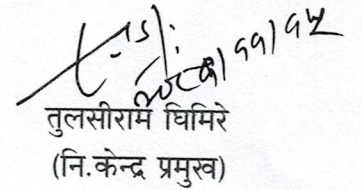 तुलसीराम घिमिरे
(नि.केन्द्र प्रमुख)